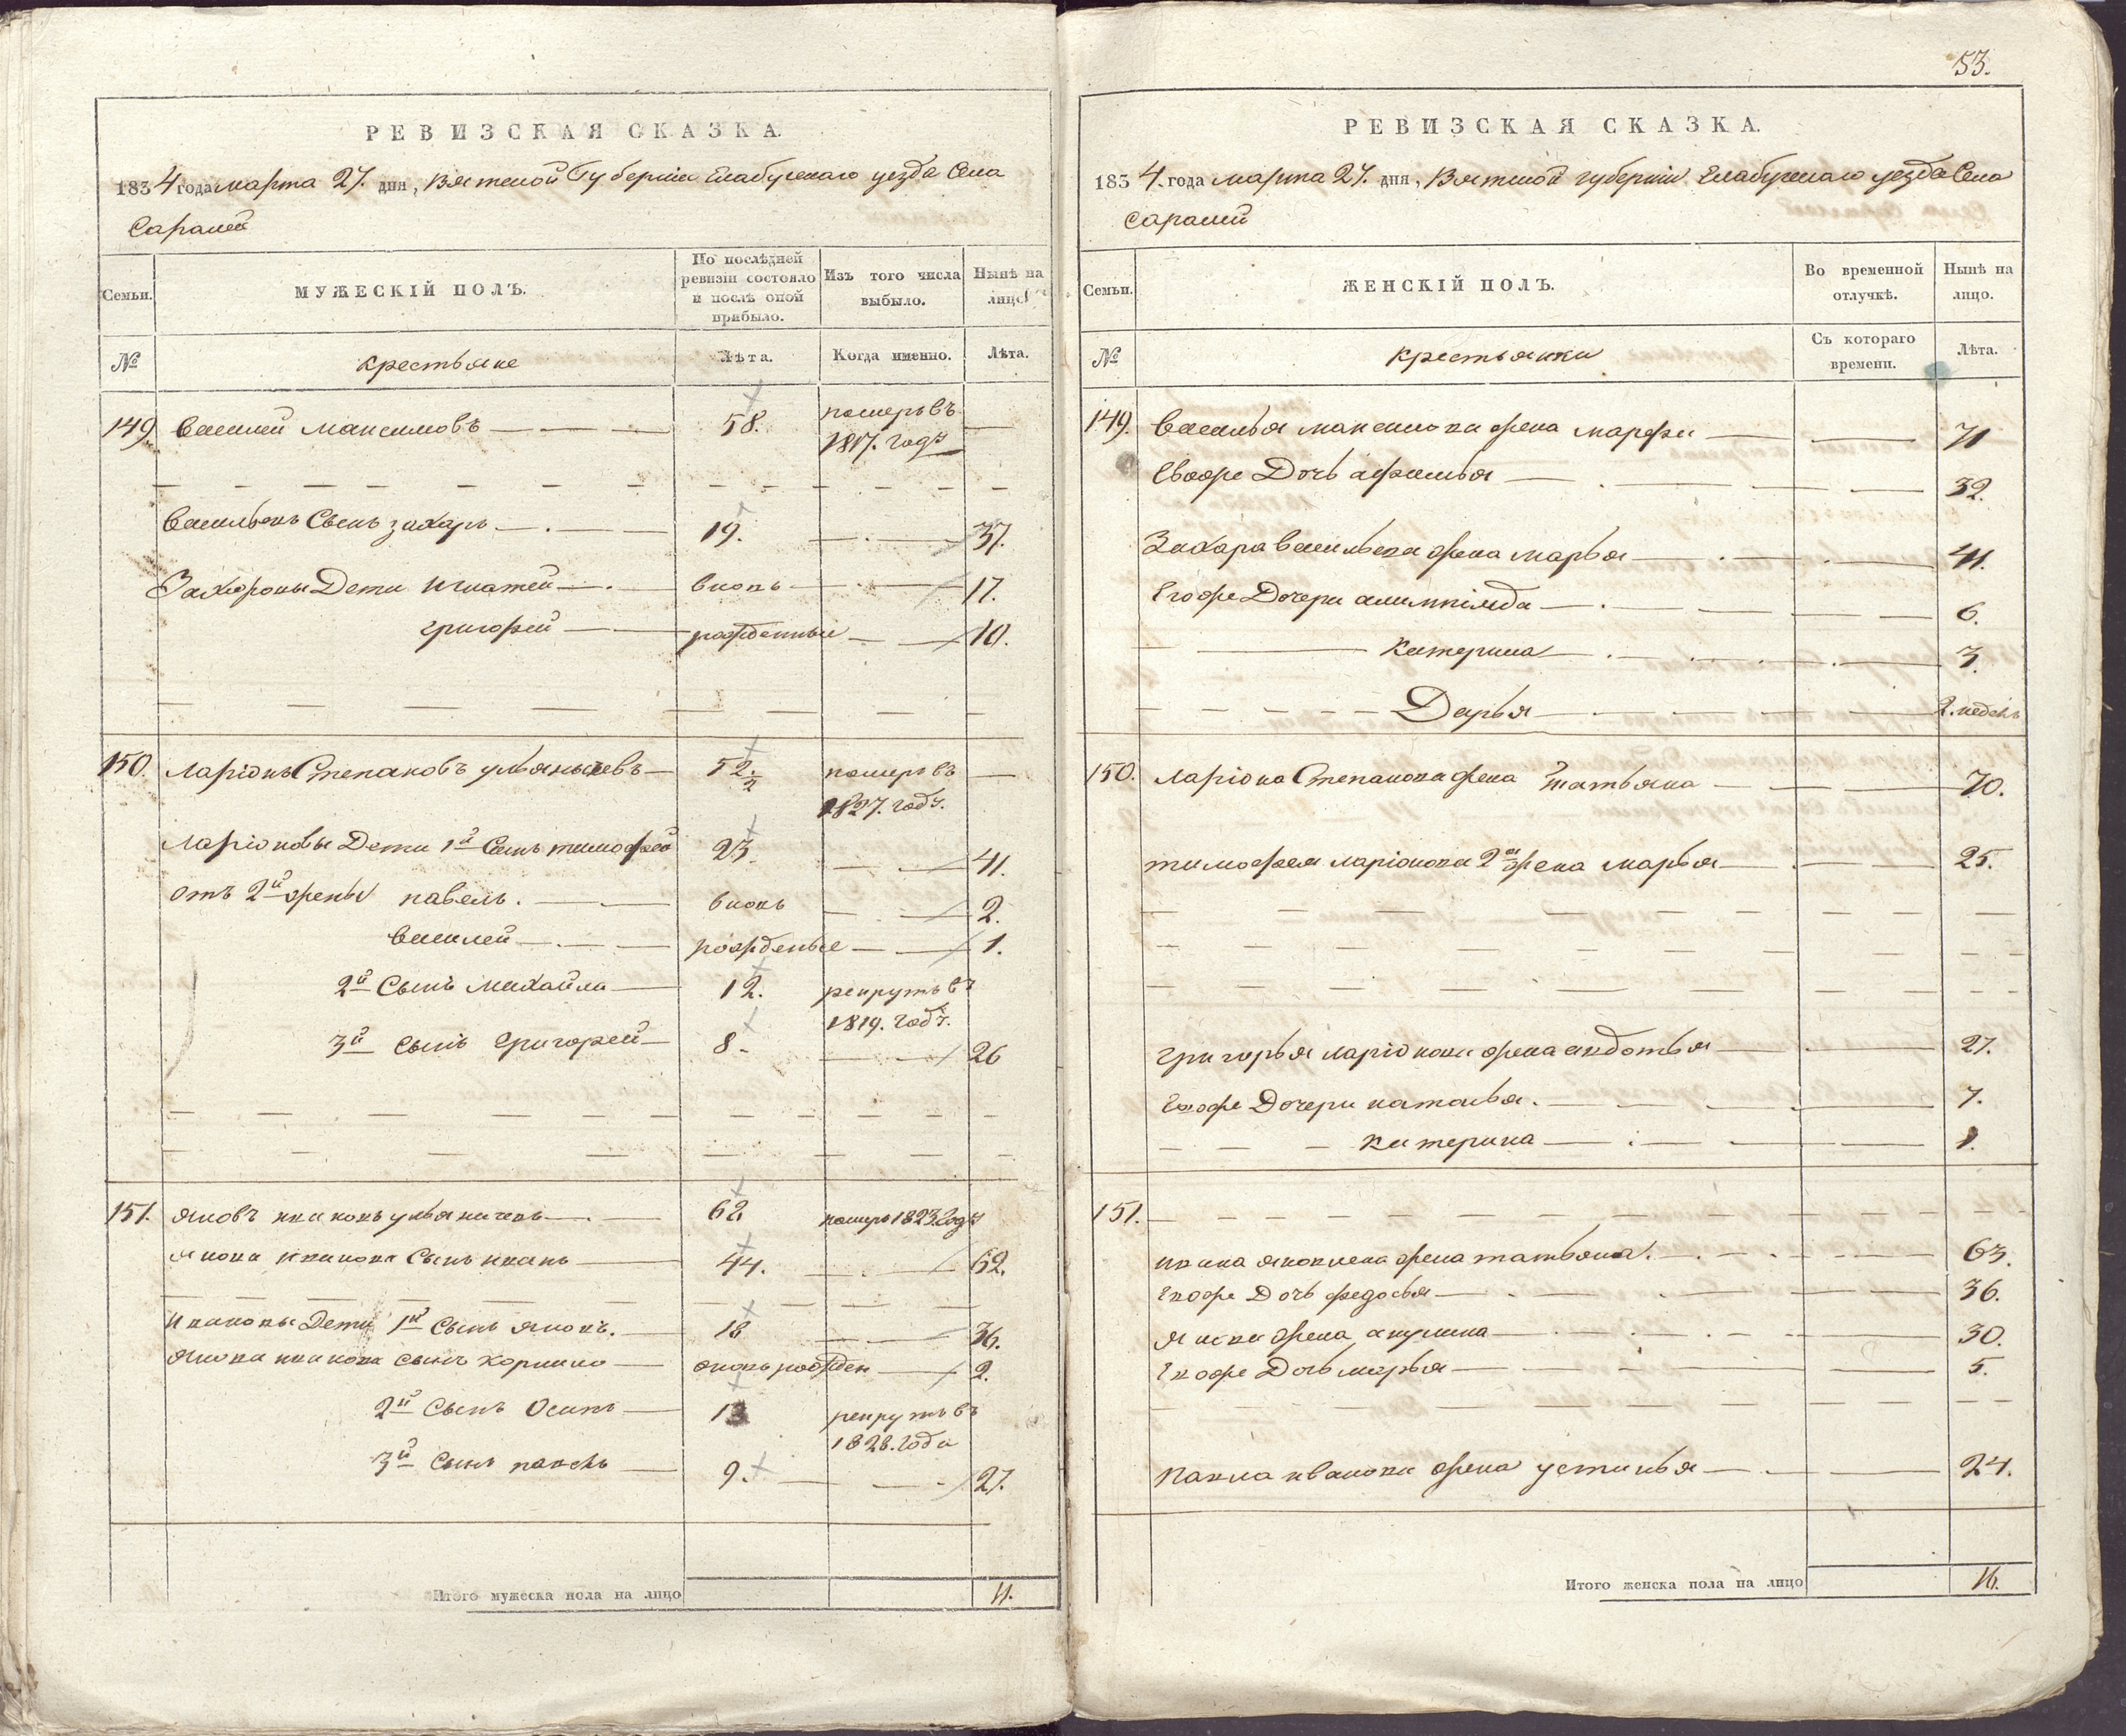 РЕВИЗСКАЯ СКАЗКА.
1834 года марта 27. дня, Вятской Губернiи Елабужскаго уезда Села
Саралей
Семьи.
МУЖЕСКІЙ ПОЛЪ.
По послѣдней
ревизіи состояло
и послѣ оной
прибыло.
Изъ того числа
выбыло.
Нынѣ на
лицо
№
крестьяне
Лѣта.
Когда именно.
Лѣта.
149. Василей Максимовъ 58. померъ въ
1817. году
Васильевъ Сынъ захаръ 19. 37.
Захаровы Дети игнатей вновь 17.
григорей рожденные 10.
150. Ларіонъ Степановъ 52. померъ въ
1827. годѣ.
Ларіоновы Дети 1й Сынъ тимофей 23. 41.
отъ 2й жены павелъ. вновь 2.
василей рожденые 1.
2й Сынъ Михайла 12. рекрутъ въ
1819. годѣ.
3й сынъ григорей 8. 26
151. яковъ ивановъ 62 померъ 1823 году
якова иванова Сынъ иванъ 44. 62.
ивановы Дети 1й сынъ яковъ. 18 36.
якова иванова сынъ корнило вновь рожден 2.
2й сынъ Осипъ рекрутъ въ
1828. года
3й сынъ павелъ 9. 27.
Итого мужеска пола на лицо 11.
53.
РЕВИЗСКАЯ СКАЗКА.
1834. года марта 27. дня, Вятской губерніи Елабужскаго уезда Села
саралей
Семьи.
ЖЕНСКІЙ ПОЛЪ.
Во временной
отлучкѣ.
Нынѣ на
лицо.
№
крестьянки
Съ котораго
времени.
Лѣта.
149. Василья максимова жена марфа 71
Евоже Дочь афимья 32.
Захара васильева жена марья 41.
Егоже Дочери 6.
Катерина 3.
Дарья 2. недель
150. ларіона Степанова жена татьяна 70.
тимофея ларіонова 2я жена марья 25.
григорья ларіонова жена авдотья 27.
Евоже Дочери наталья. 7.
катерина 1.
151.
ивана яковлева жена татьяна. 63.
Евоже Дочь федосья 36.
якова жена акулина 30.
Евоже Дочь марья 5.
павла иванова жена устинья 24.
Итого женска пола на лицо 16.